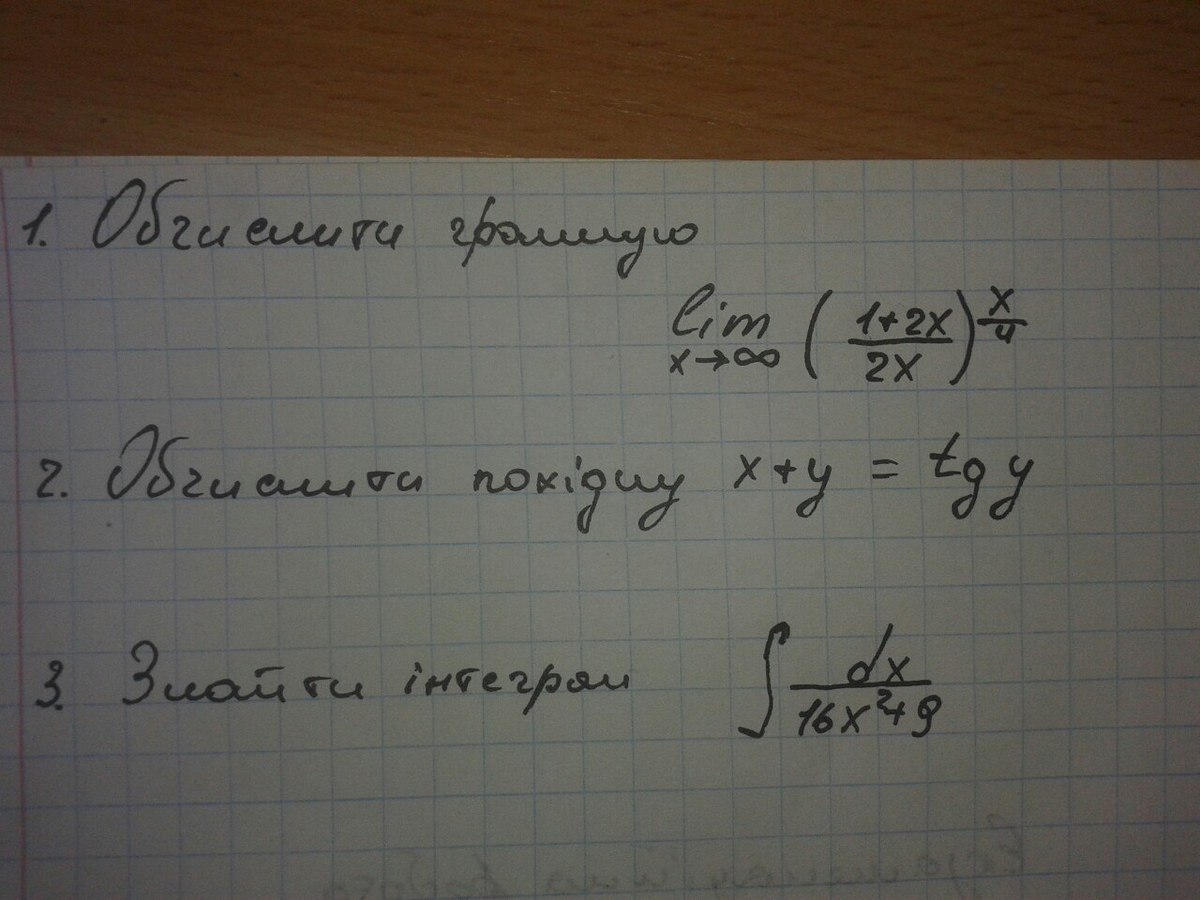 1. Обчислити границю
lim x→∞ ( (1+2x)/(2x) )^(x/4)
2. Обчислити похідну x+y = tg y
3. Знайти інтеграл ∫ dx/(16x²+9)